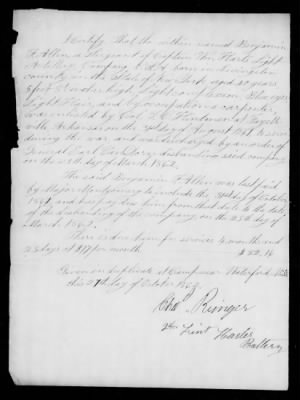 I Certify That the within named Benjamin
F Allen a Sergeant of Captain Tho Harts Light
Artillery Company C.S.A. born in
county in the State of New York aged 30 years
5 feet high, Light complexion, Blue eyes
Light Hair, and by occupation a carpenter,
was enlisted by Col at Fayette
ville Arkansas on the day of August 1861 to serve
during the war, and was discharged by an order of
General Earl Van Dorn disbanding said company
on the 25th day of March 1862.
The said Benjamin F Allen was last paid
by Major Montgomery to include the 31st day of October
1861, and has pay due him from that date to the date
of the disbanding of the company on the 25th day of
March 1862.
There is due him for service 4 months and
25 days at $17 per month $82.16
Given in duplicate at Camp near Waterford Miss
this 27th day of October 1862,
Chas Ringer
2nd Lieut Harts
Battery